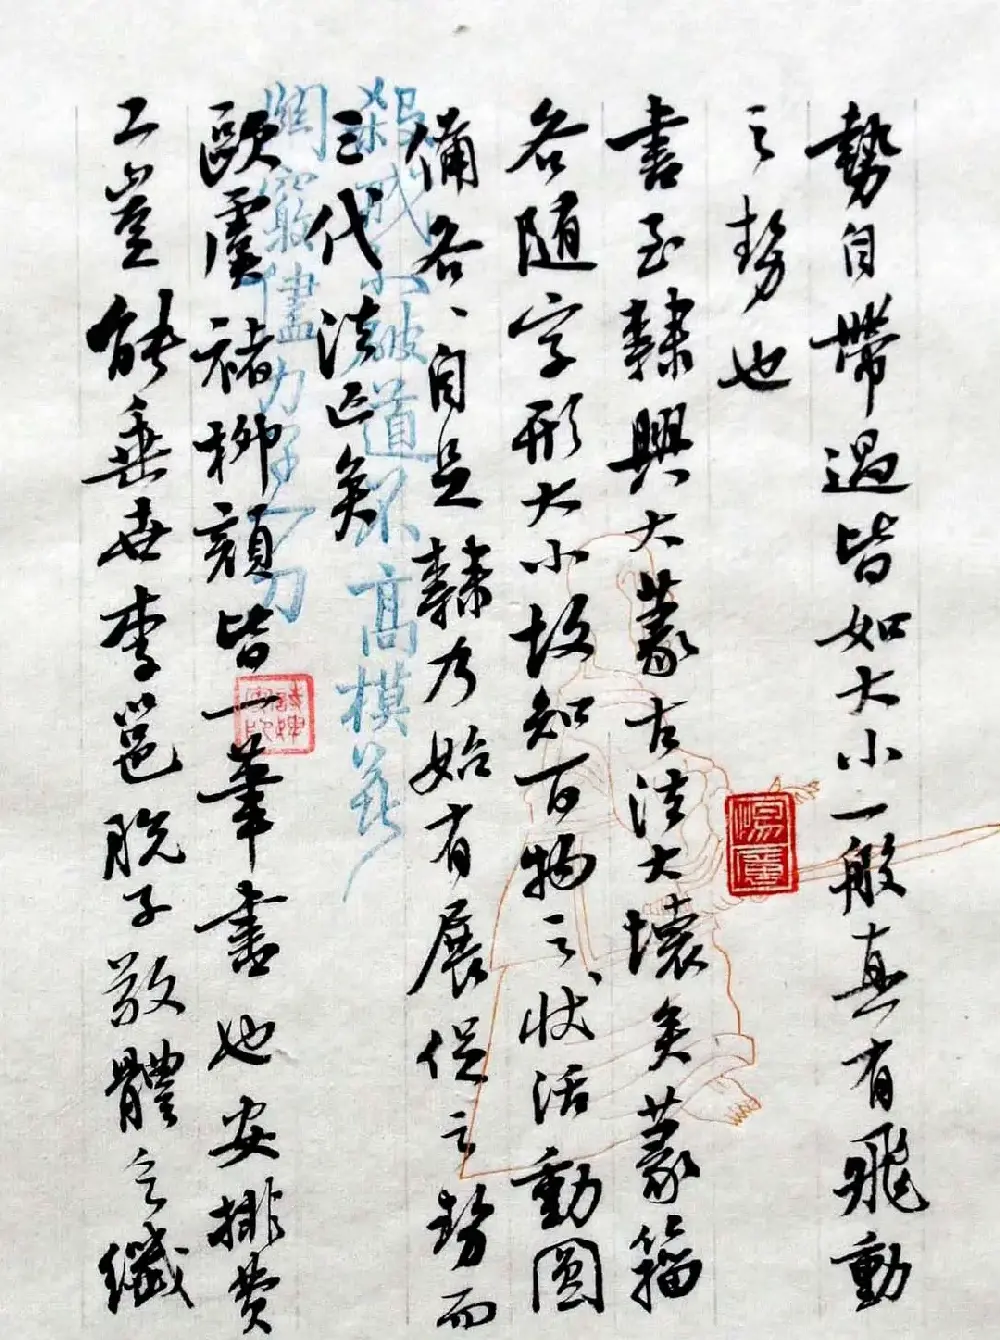 勢自帶過皆如大小一般真有飛動
之勢也
書至隸興大篆古法大壞矣篆籀
各随字形大小故知百物之狀活動圓
備各、自足隸乃始有展促之勢而
三代法亡矣
歐虞褚柳顏皆一筆書也安排費
工豈能垂世李邕脫子敬體乏纖